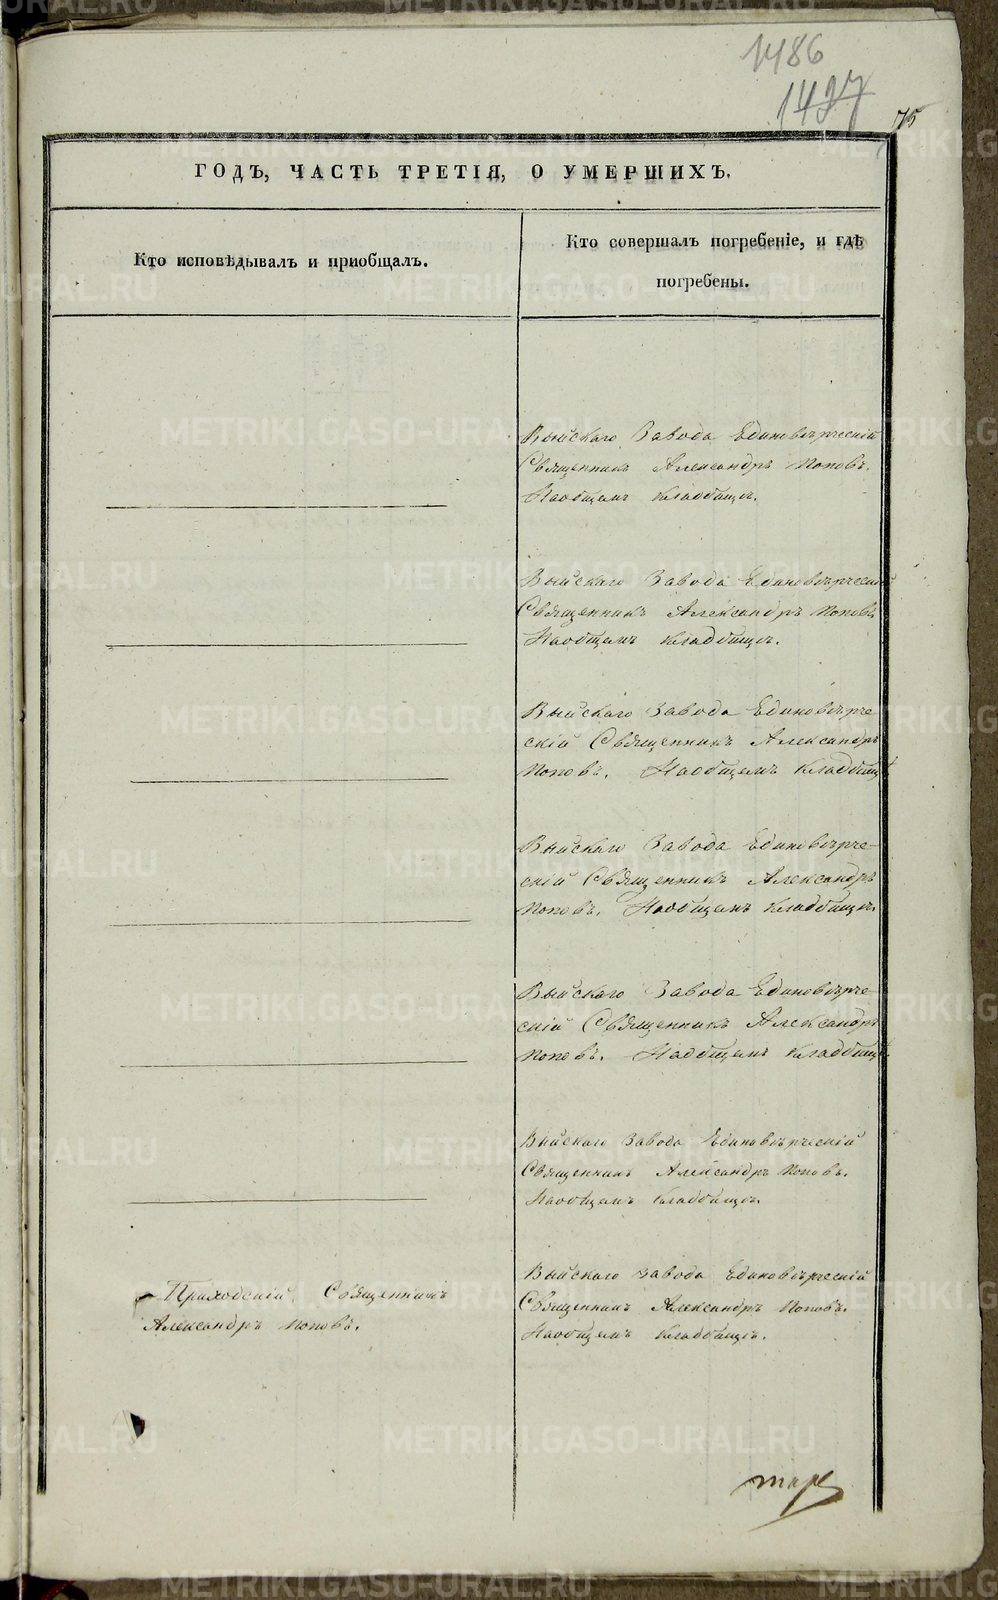 1486
1487
75
ГОДЪ, ЧАСТЬ ТРЕТІЯ, О УМЕРШИХЪ.
Кто исповѣдывалъ и приобщалъ.
Кто совершалъ погребеніе, и гдѣ
погребены.
Выйскаго Завода Единовѣрческій
Священникъ Александръ Поповъ.
Наобщемъ кладбищѣ.
Выйскаго Завода Единовѣрческій
Священникъ Александръ Поповъ
Наобщемъ кладбищѣ.
Выйскаго Завода Единовѣрче
скій Священникъ Александръ
Поповъ. Наобщемъ кладбищѣ
Выйскаго Завода Единовѣрче-
скій Священникъ Александръ
Поповъ. Наобщемъ кладбищѣ.
Выйскаго Завода Единовѣрче-
скій Священникъ Александръ
Поповъ. Наобщемъ кладбищѣ
Выйскаго Завода Единовѣрческій
Священникъ Александръ Поповъ.
Наобщемъ кладбищѣ.
Приходскій Священникъ
Александръ Поповъ.
Выйскаго Завода Единовѣрческій
Священникъ Александръ Поповъ.
Наобщемъ кладбищѣ.
METRIKI.GASO-URAL.RU